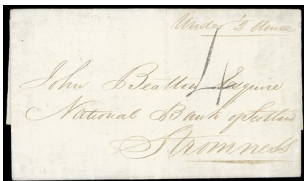 Under ½ Ounce
John Beatton Esquire
National Bank of Scotland
Stromness